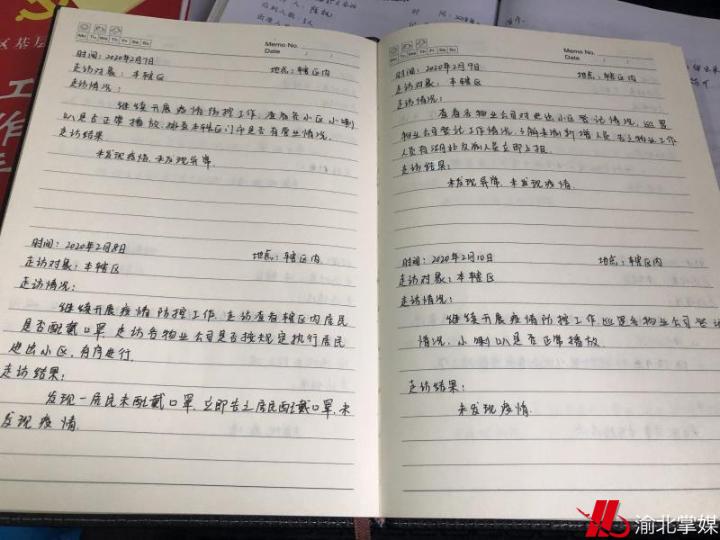 Memo No.
Mo Tu We Th Fr Sa Su
Date / /
时间：2020年2月7日 地点：辖区内
走访对象：本辖区
走访情况：
继续开展疫情防控工作，查看各小区小喇
叭是否正常播放，排查本辖区门市是否有营业情况。
走访结果
未发现疫情，未发现异常.
时间：2020年2月8日 地点：辖区内
走访对象：本辖区
走访情况：
继续开展疫情防控工作，走访查看辖区内居民
是否配戴口罩，走访各物业公司是否按规定执行居民
进出小区，有序进行.
走访结果：
发现一居民未配戴口罩，立即告之居民配戴口罩，未
发现疫情.
Memo No.
Mo Tu We Th Fr Sa Su
Date / /
时间：2020年2月9日 地点：辖区内
走访对象：本辖区
走访情况：
查看各物业公司对进出小区登记情况，巡查
物业公司登记工作情况，了解来渝新增人员，告之物业工作
人员有湖北反渝人员立即上报.
走访结果：
未发现异常，未发现疫情.
时间：2020年2月10日 地点：辖区内
走访对象：本辖区
走访情况：
继续开展疫情防控工作，巡查各物业公司登记
情况，小喇叭是否正常播放.
走访结果：
未发现疫情.
区基层
工
作
渝北掌媒